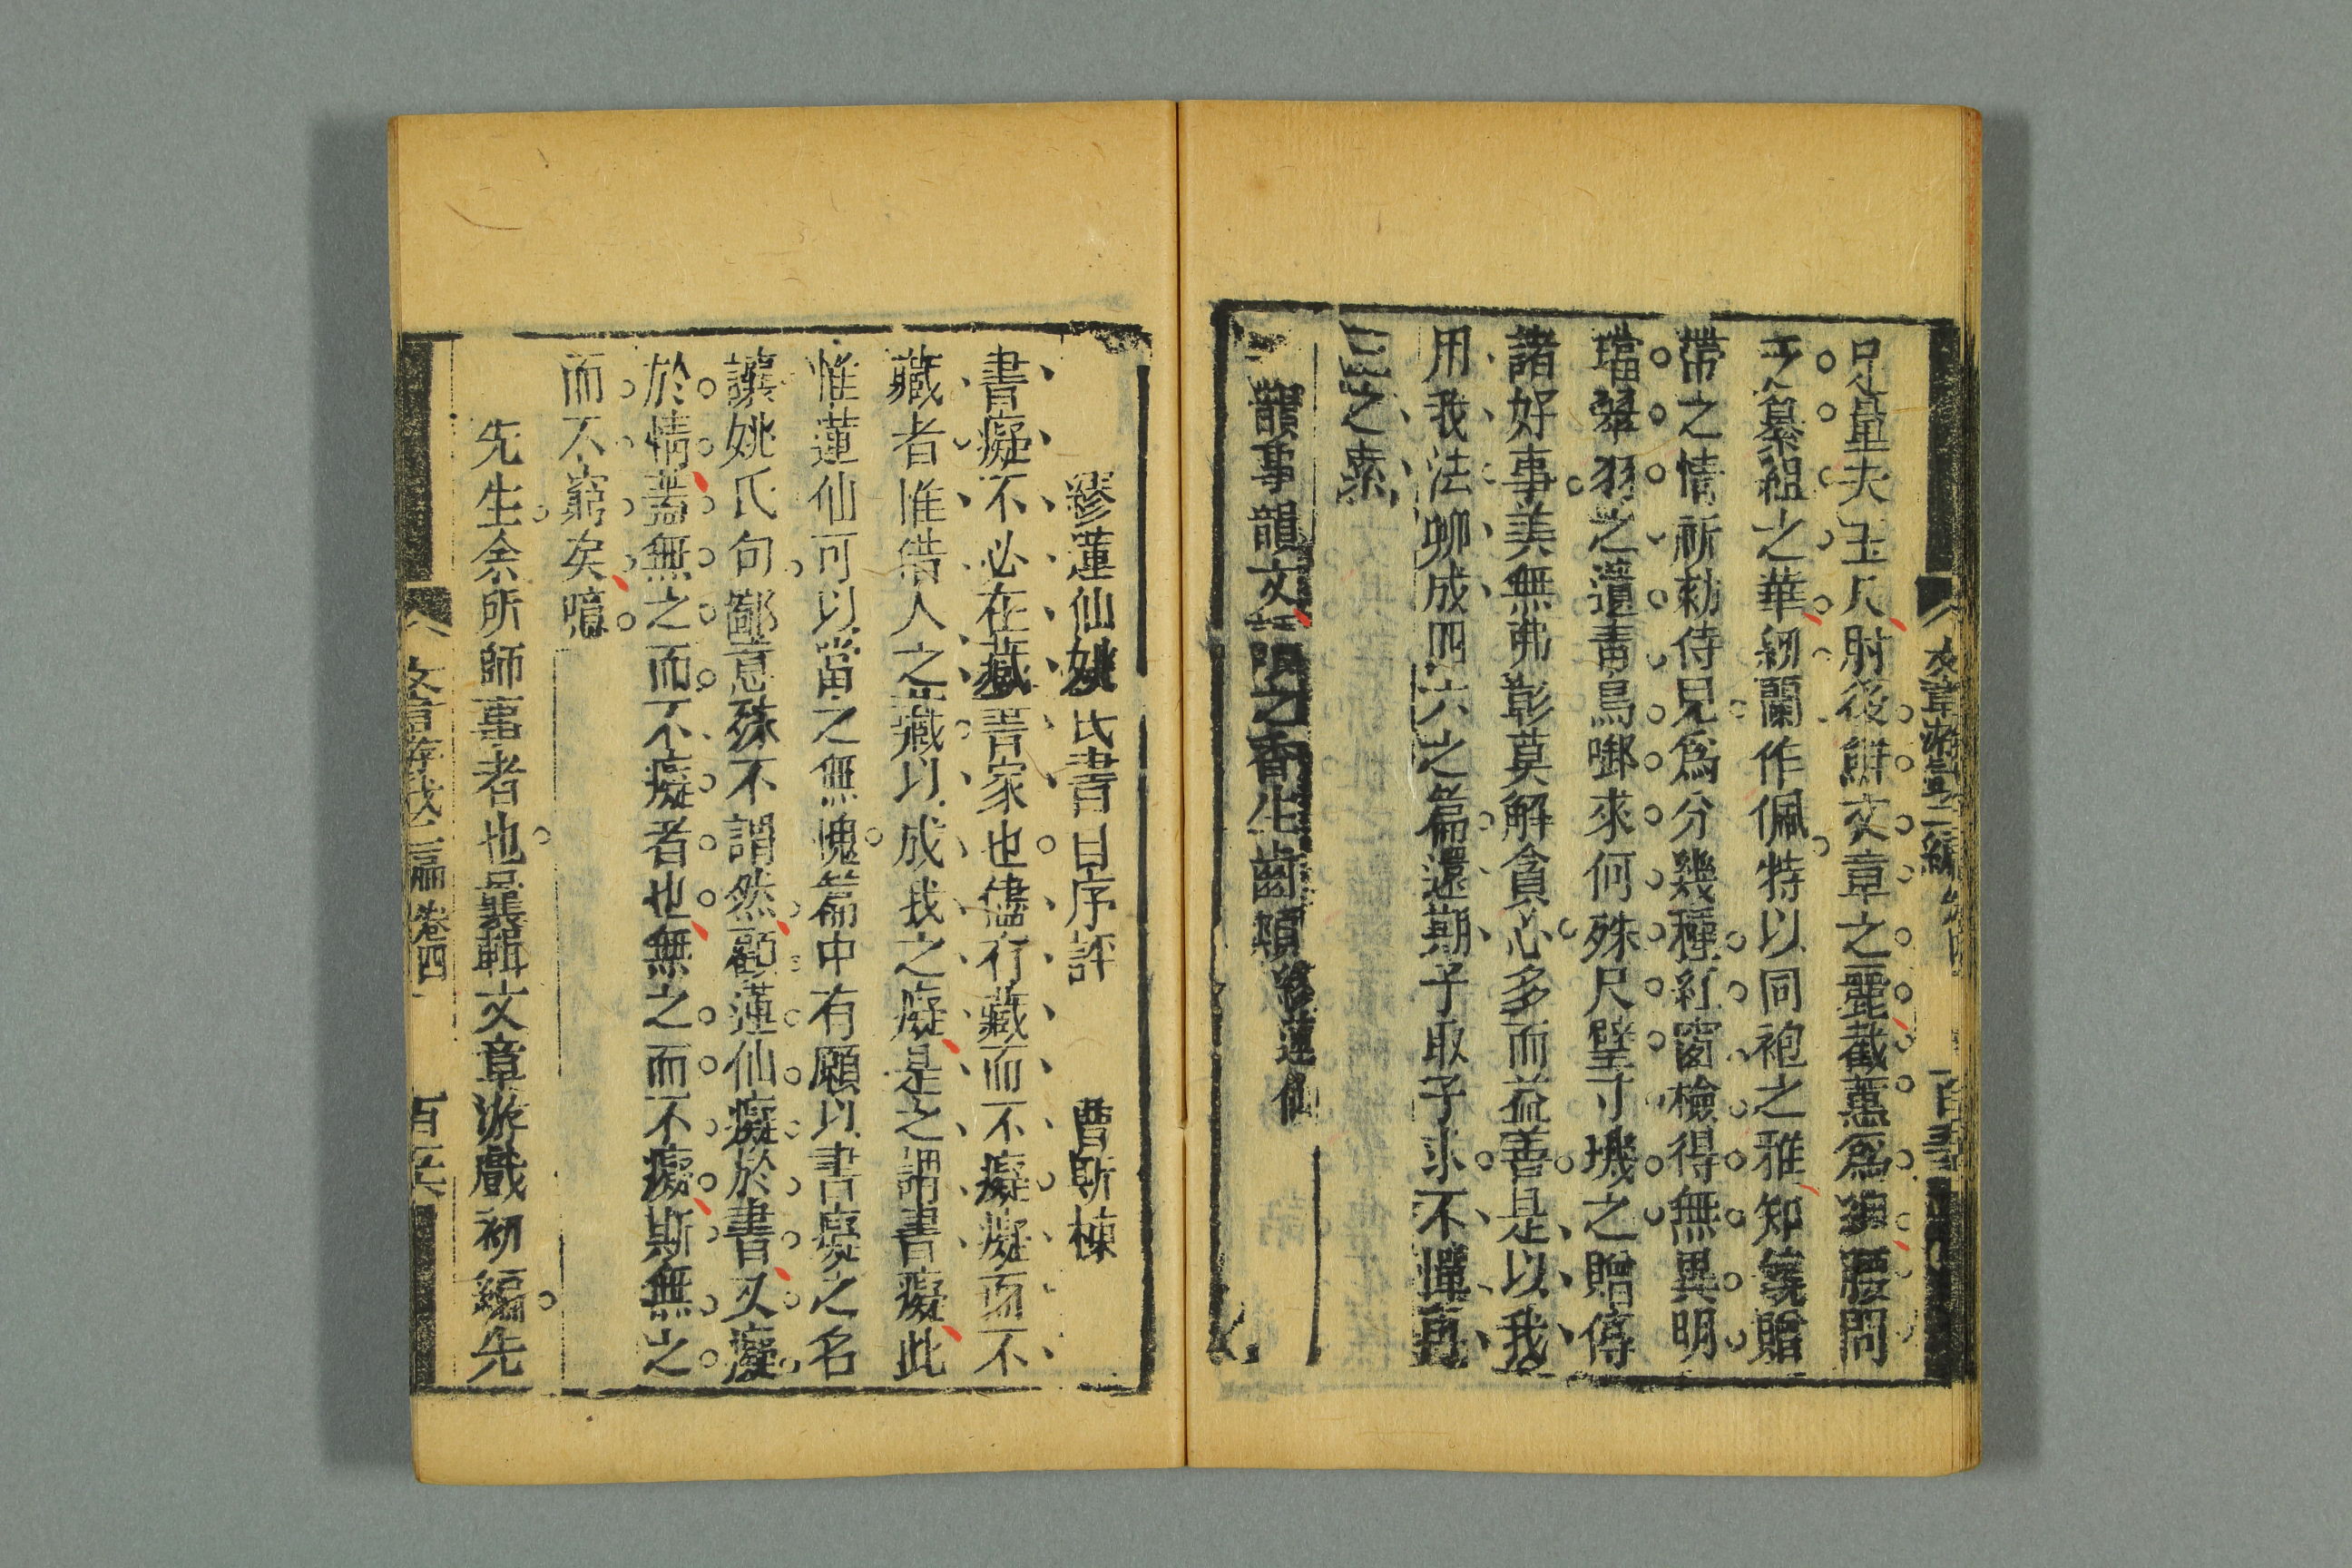 足量夫玉尺肘後觧文章之麗截蕙爲腰問
纂組之華紉蘭作佩特以同袍之雅知箋贈
帶之情祈勑侍兒爲分幾種紅窗檢得無異明
璫翠羽之遺靑鳥啣來何殊尺璧寸璣之贈倘
諸好事美無弗彰莫解貪心多而益善是以我
用我法聊成四六之篇還期子取子求不憚再
三之索
韻事韻文一經之香生齒頰繆蓮仙
繆蓮仙姚氏書目序評 曹斯棟
書癡不必在藏書家也儘有藏而不癡癡而不
藏者惟借人之藏以成我之癡是之謂書癡此
惟蓮仙可以當之無愧篇中有願以書癡之名
讓姚氏句鄙意殊不謂然顧蓮仙癡於書又癡
於情蓋無之而不癡者也無之而不癡斯無之
而不窮矣噫
先生余所師事者也曩輯文章游戲初編先
文章游戲二編 卷四